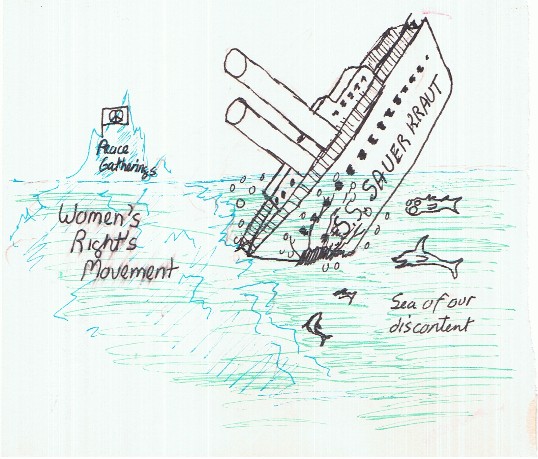 Peace
Gatherings
Women's
Right's
Movement
SAUER KRAUT
Sea of our
discontent